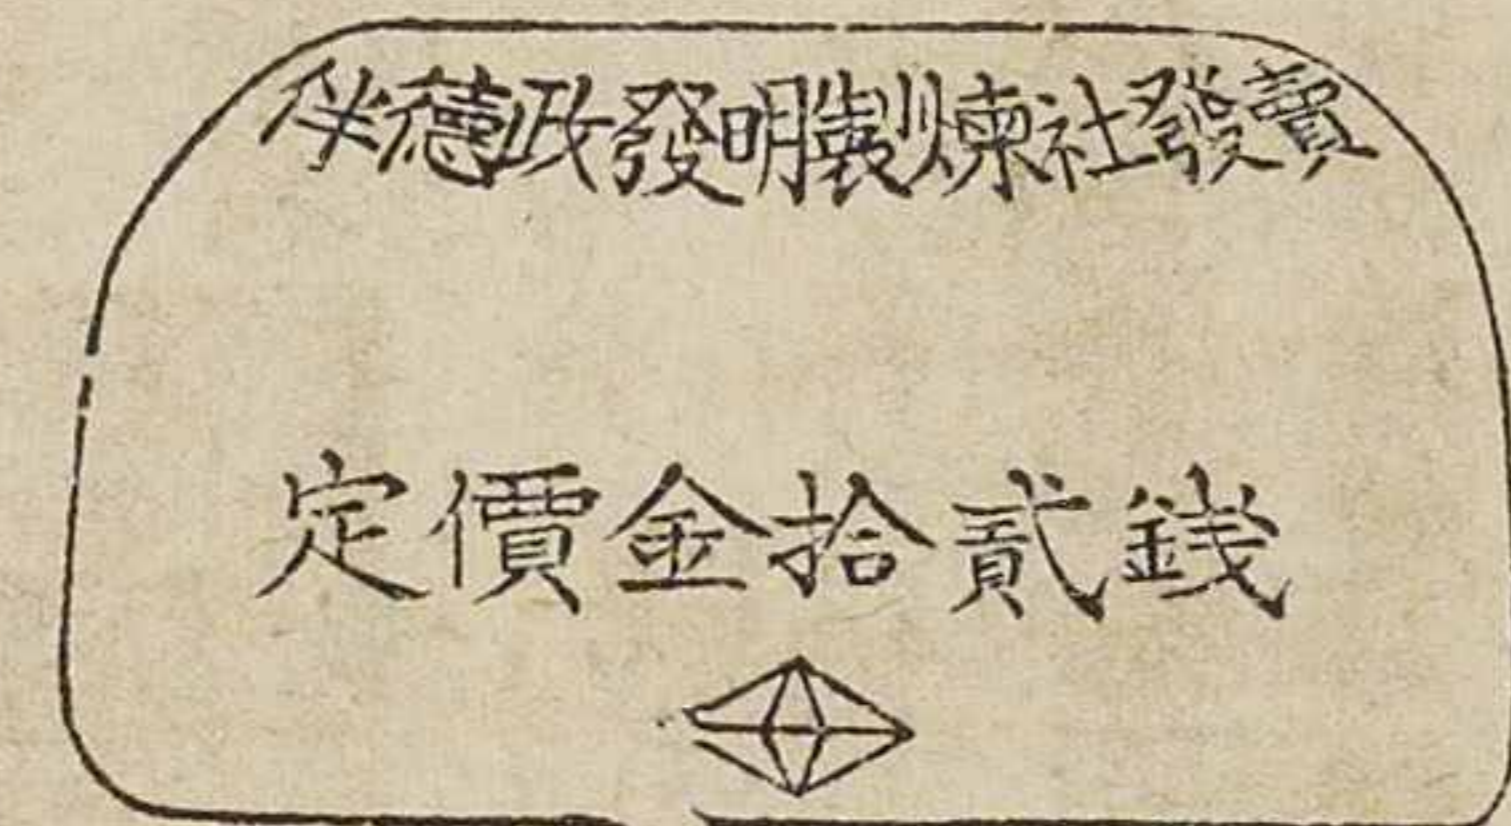 伴德政發明製煉社發賣
定價金拾貳銭